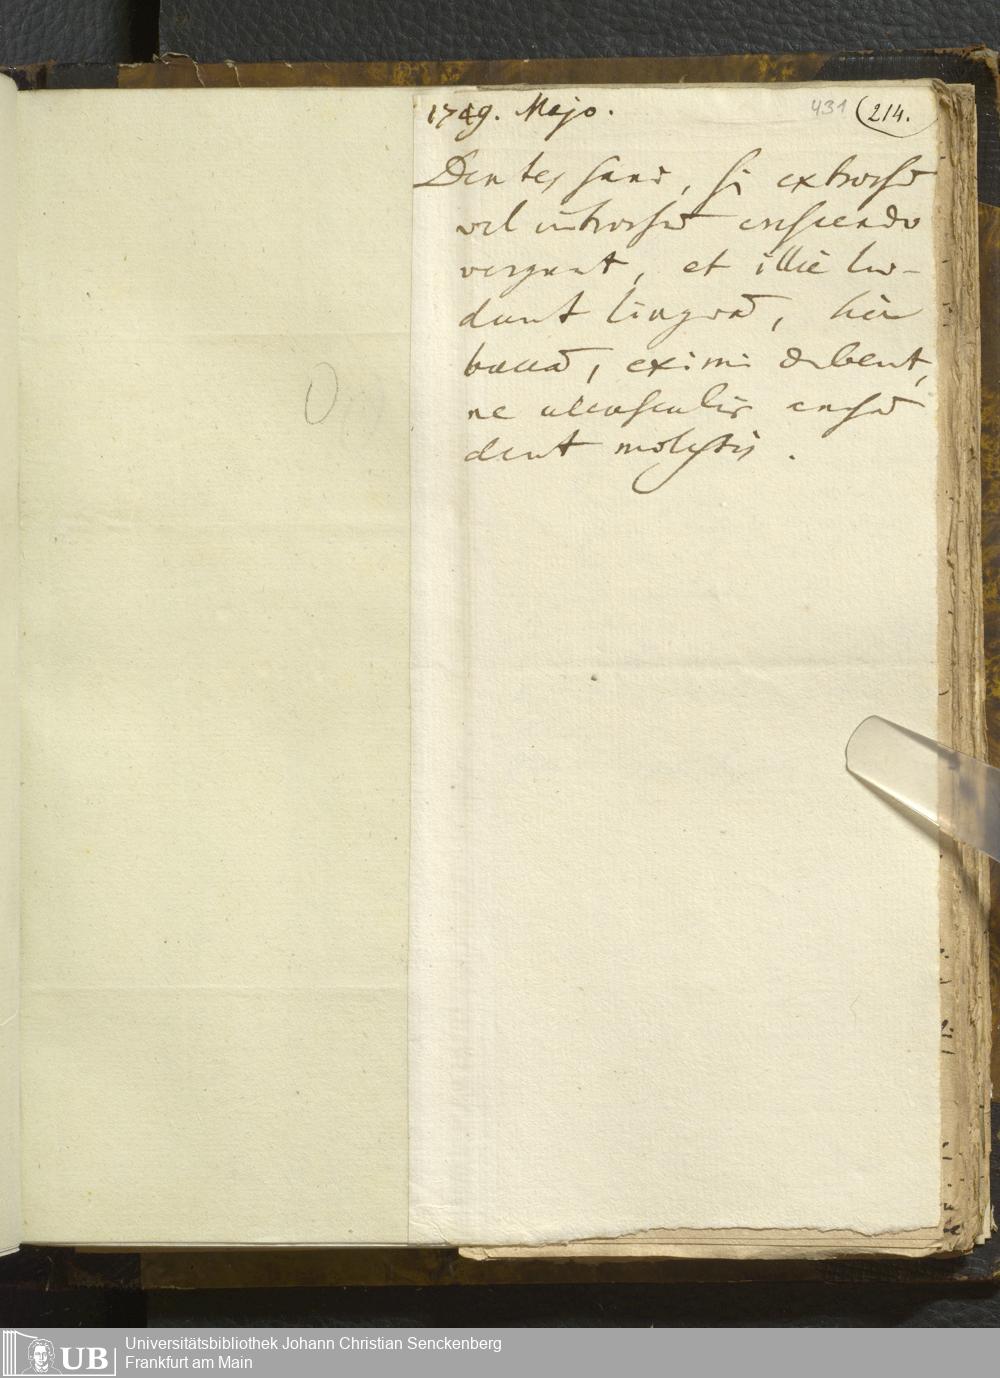 1749. Majo.
431
214.
Dentes sani, si extrorsū
vel introrsū crescendo
vergunt, et illic læ-
dunt linguā, hic
buccā, eximi debent,
ne ulcusculis ansā
dent molestis.
UB
Universitätsbibliothek Johann Christian Senckenberg
Frankfurt am Main